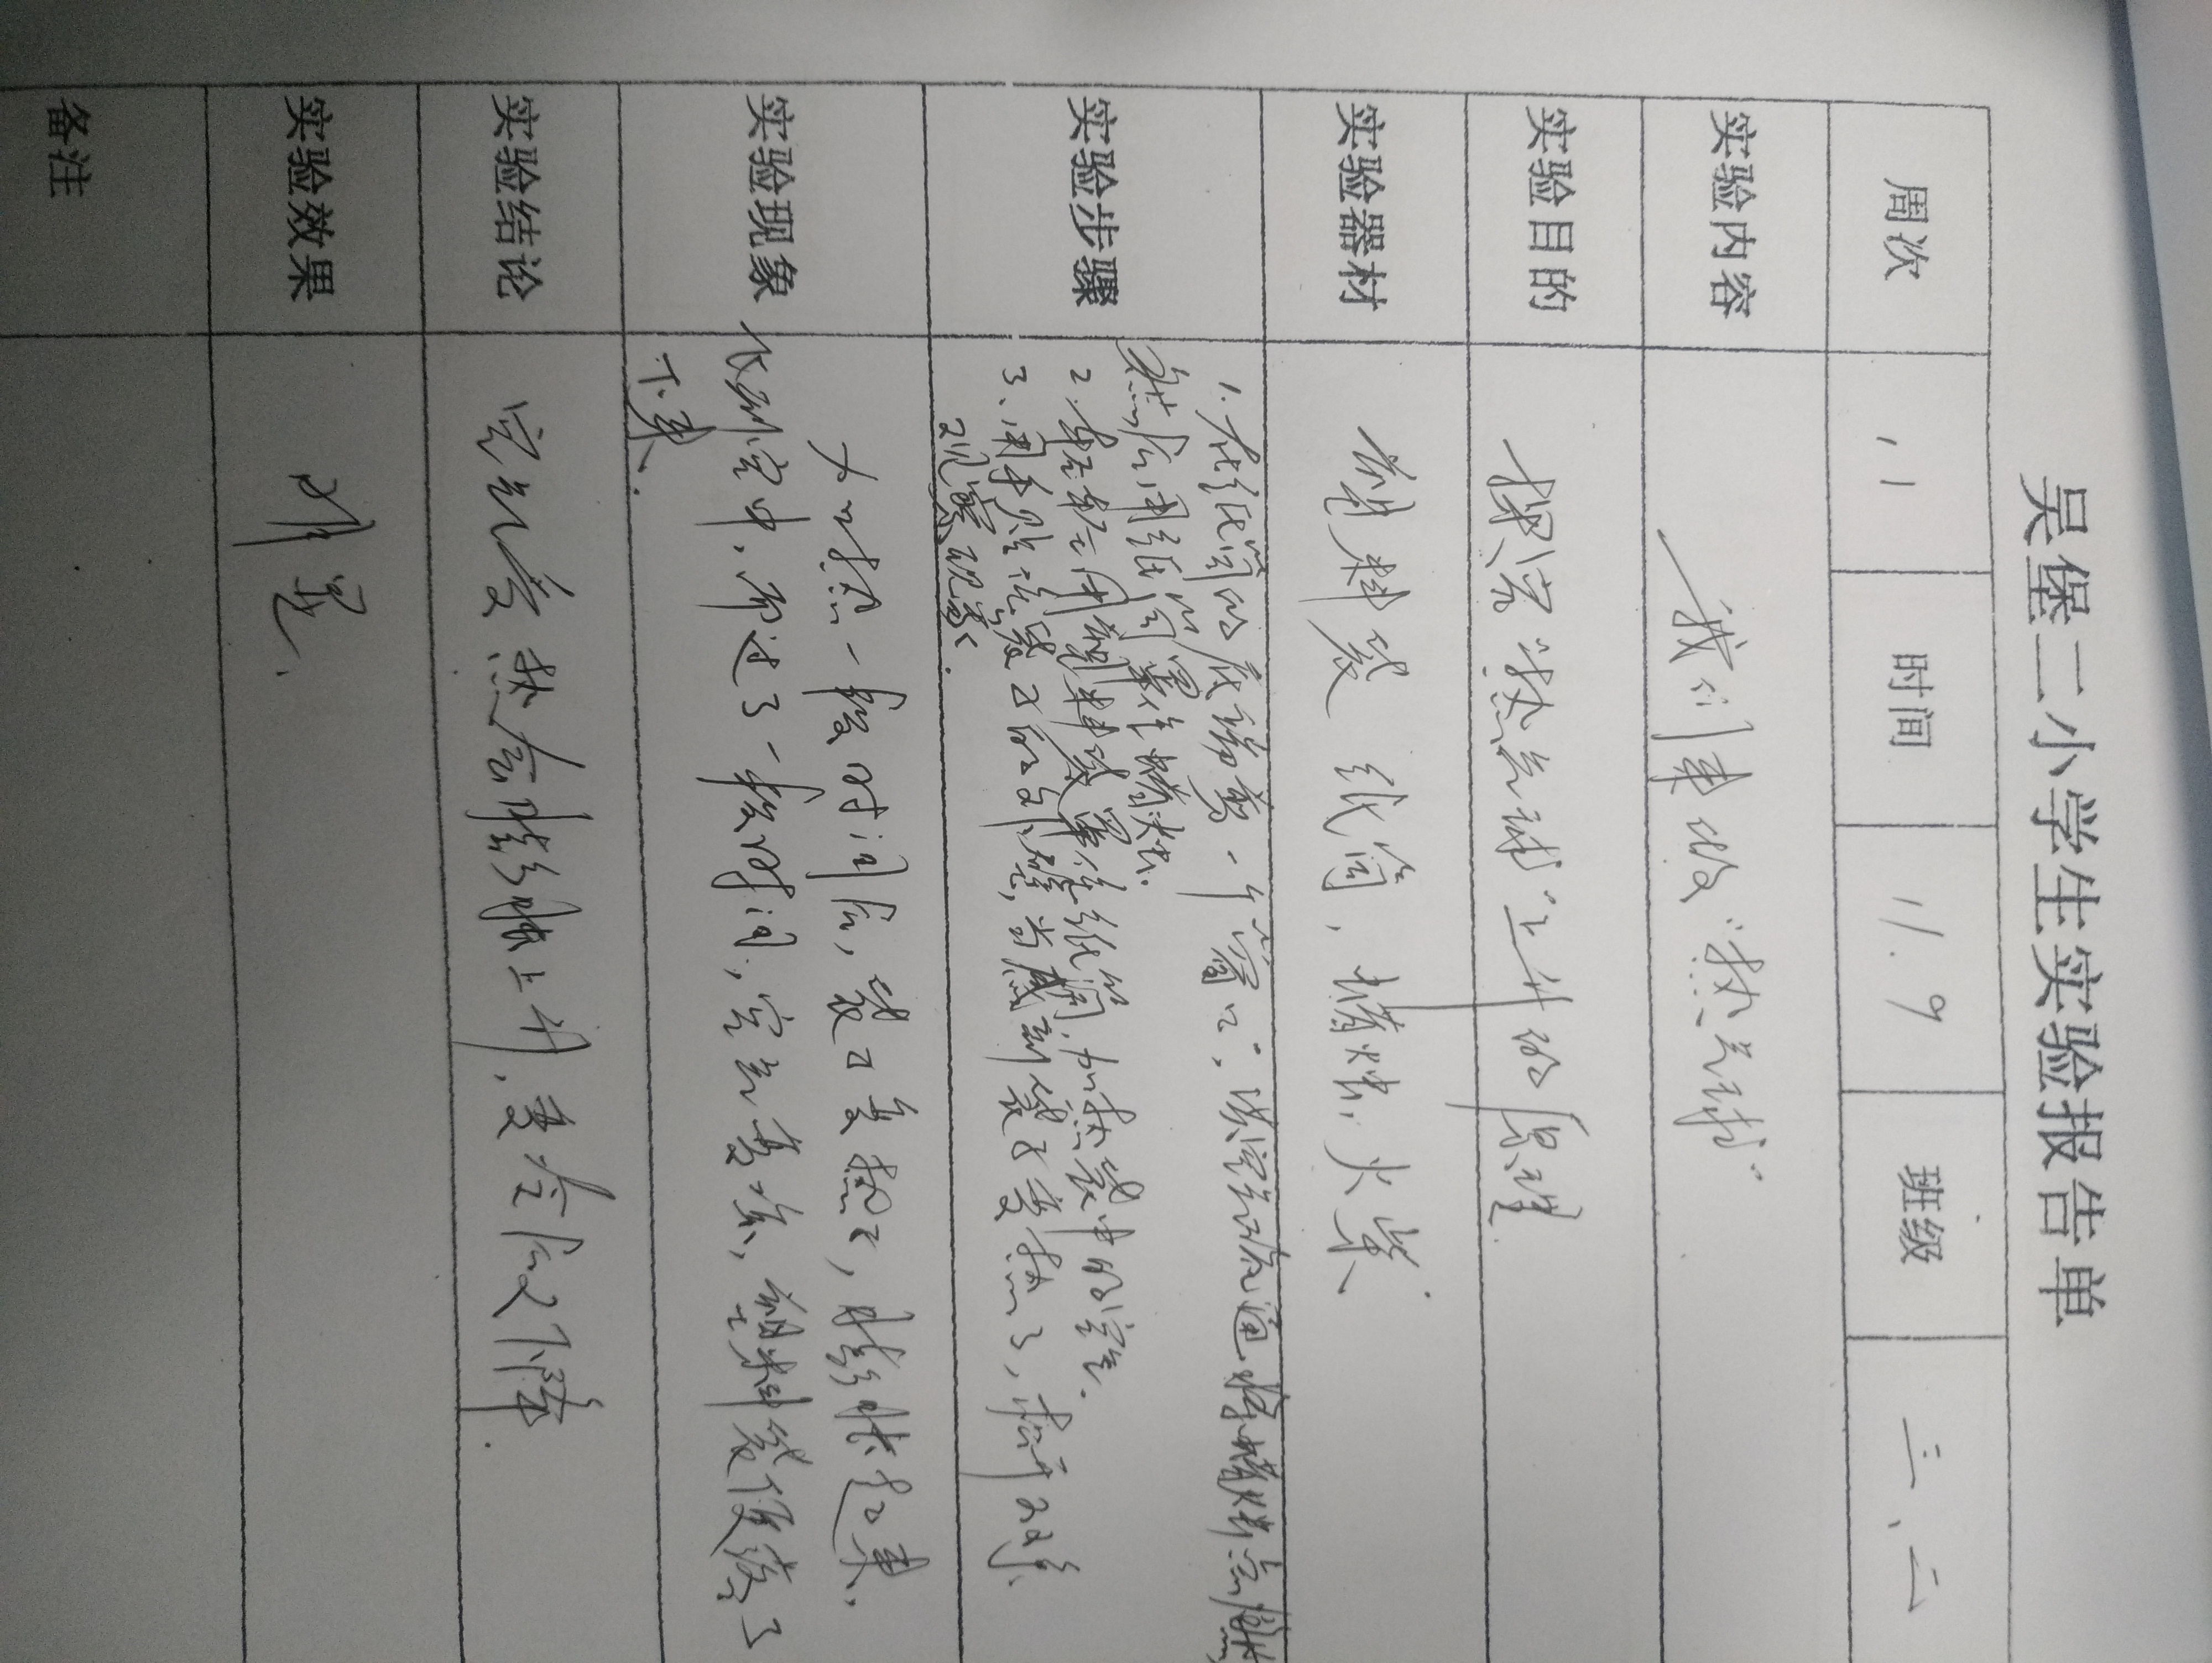 吴堡二小学生实验报告单
周次 11 时间 11.9 班级 三、二
实验内容 我们来做“热气球”
实验目的 探究“热气球”上升的原理
实验器材 塑料袋 纸筒，蜡烛，火柴
实验步骤 1.在纸筒的底端剪一个“窗口”，供空气流通 将蜡烛点燃
然后用纸筒罩住蜡烛.
2.用塑料袋罩住纸筒.加热袋中的空气.
3、用手贴袋子的外壁，当感到袋子变热了，松开双手
观察现象.
实验现象 加热一段时间后，袋子变热了，膨胀起来，
飞到空中，而过了一段时间，空气变冷，塑料袋慢慢落了
下来.
实验结论 空气受热会膨胀上升，变冷后又下降.
实验效果 明显.
备注